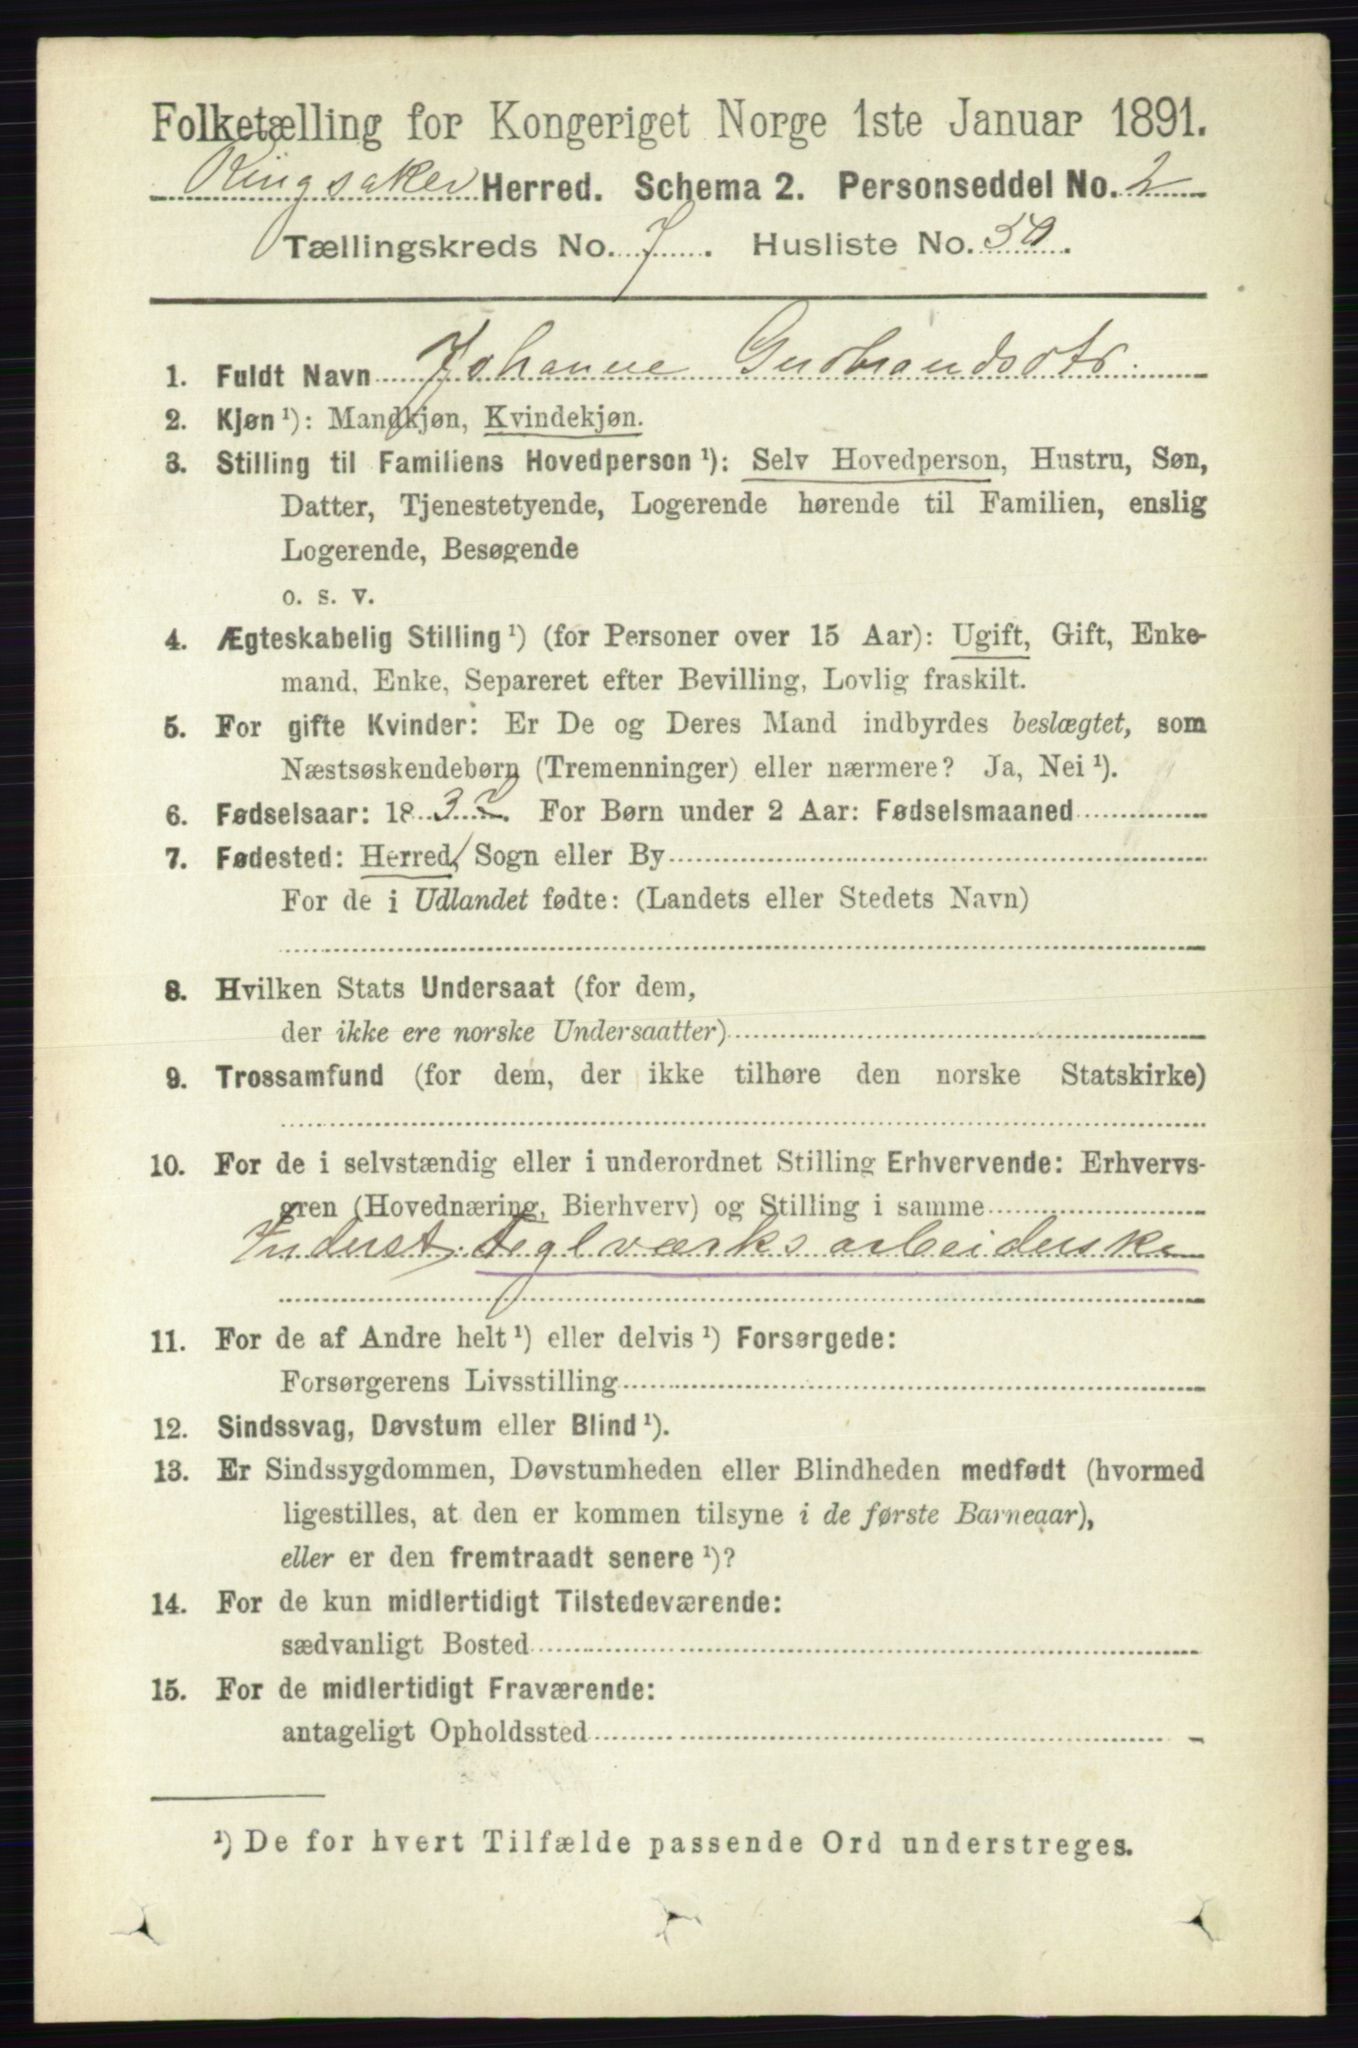 Folketælling for Kongeriget Norge 1ste Januar 1891.
Ringsaker Herred. Schema 2. Personseddel No. 2
Tællingskreds No. 7. Husliste No. 50.
1. Fuldt Navn Johanne Gudbrandsdtr.
2. Kjøn ¹): Mandkjøn, Kvindekjøn.
3. Stilling til Familiens Hovedperson ¹): Selv Hovedperson, Hustru, Søn,
Datter, Tjenestetyende, Logerende hørende til Familien, enslig
Logerende, Besøgende
o. s. v.
4. Ægteskabelig Stilling ¹) (for Personer over 15 Aar): Ugift, Gift, Enke-
mand, Enke, Separeret efter Bevilling, Lovlig fraskilt.
5. For gifte Kvinder: Er De og Deres Mand indbyrdes beslægtet, som
Næstsøskendebørn (Tremenninger) eller nærmere? Ja, Nei ¹).
6. Fødselsaar: 1837. For Børn under 2 Aar: Fødselsmaaned
7. Fødested: Herred, Sogn eller By
For de i Udlandet fødte: (Landets eller Stedets Navn)
8. Hvilken Stats Undersaat (for dem,
der ikke ere norske Undersaatter)
9. Trossamfund (for dem, der ikke tilhøre den norske Statskirke)
10. For de i selvstændig eller i underordnet Stilling Erhvervende: Erhvervs-
gren (Hovednæring, Bierhverv) og Stilling i samme
Inderst. teglværksarbeiderske
11. For de af Andre helt ¹) eller delvis ¹) Forsørgede:
Forsørgerens Livsstilling
12. Sindssvag, Døvstum eller Blind ¹).
13. Er Sindssygdommen, Døvstumheden eller Blindheden medfødt (hvormed
ligestilles, at den er kommen tilsyne i de første Barneaar),
eller er den fremtraadt senere ¹)?
14. For de kun midlertidigt Tilstedeværende:
sædvanligt Bosted
15. For de midlertidigt Fraværende:
antageligt Opholdssted
¹) De for hvert Tilfælde passende Ord understreges.